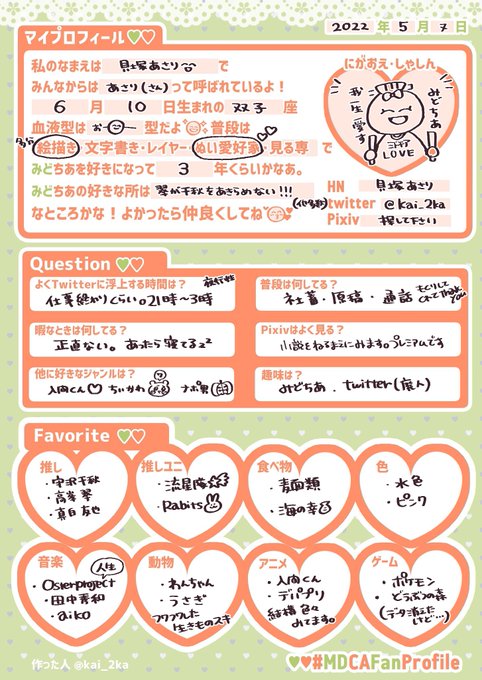 マイプロフィール
2022年5月7日
私のなまえは 貝塚あさり で
みんなからは あさり(さん) って呼ばれているよ!
6月10日生まれの 双子 座
血液型は お 型だよ 普段は
多分
絵描き・文字書き・レイヤー・ぬい愛好家・見る専 で
みどちあを好きになって 3 年くらいかなあ。
みどちあの好きな所は 翠が千秋をあきらめない!!!
(他多数)
なところかな!よかったら仲良くしてね
にがおえ・しゃしん
みどちあ
我一生愛す
ミドチア
LOVE
HN 貝塚あさり
twitter @kai_2ka
Pixiv 探して下さい
Question
よくTwitterに浮上する時間は? 夜行性
仕事終わりくらい。21時〜3時
普段は何してる?
社畜・原稿・通話
もくりしてくれて Thank you
暇なときは何してる?
正直ない。あったら寝てる
Pixivはよく見る?
小説をねるまえにみます。プレミアムです
他に好きなジャンルは?
入間くん ちいかわ ナポ男
趣味は?
みどちあ・twitter(廃人)
Favorite
推し
・守沢千秋
・高峯翠
・真白友也
推しユニ
・流星隊
・Rabits
食べ物
・麺類
・海の幸
色
・水色
・ピンク
音楽
人生
・Osterproject
・田中秀和
・aiko
動物
・わんちゃん
・うさぎ
フワフワした
生きものスキ
アニメ
・入間くん
・デパプリ
結構色々
みてます。
ゲーム
・ポケモン
・どうぶつの森
(データ消えたけど…)
作った人 @kai_2ka
#MDCAFanProfile